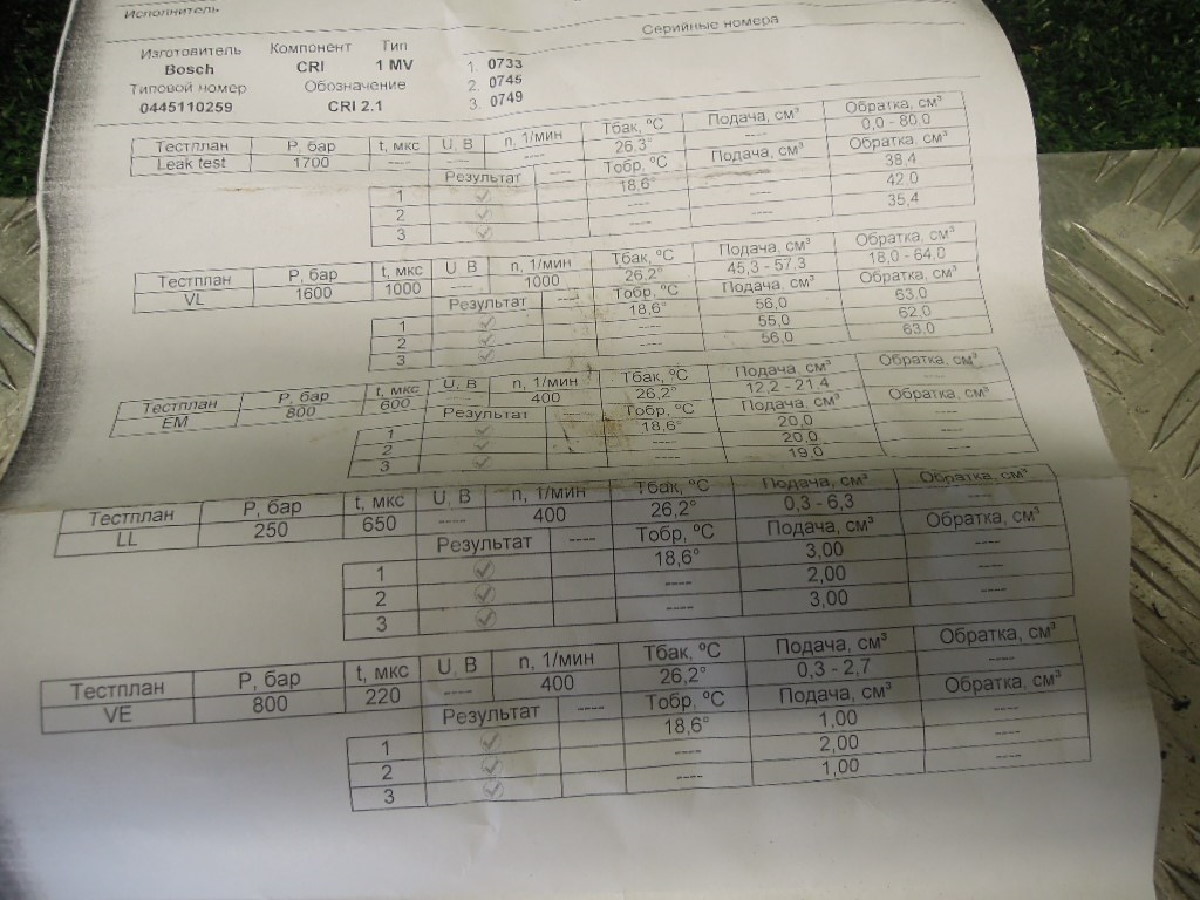 Исполнитель
Серийные номера
Изготовитель Компонент Тип
Bosch CRI 1 MV 1. 0733
Типовой номер Обозначение 2. 0745
0445110259 CRI 2.1 3. 0749
Тестплан P, бар t, мкс U, В n, 1/мин Тбак, ºC Подача, см³ Обратка, см³
Leak test 1700 ---- ---- ---- 26,3° ---- 0,0 - 80,0
Результат ---- Тобр, ºC Подача, см³ Обратка, см³
1 ✓ 18,6° ---- 38,4
2 ✓ ---- ---- 42,0
3 ✓ ---- ---- 35,4
Тестплан P, бар t, мкс U, В n, 1/мин Тбак, ºC Подача, см³ Обратка, см³
VL 1600 1000 ---- 1000 26,2° 45,3 - 57,3 18,0 - 64,0
Результат ---- Тобр, ºC Подача, см³ Обратка, см³
1 ✓ 18,6° 56,0 63,0
2 ✓ ---- 55,0 62,0
3 ✓ ---- 56,0 63,0
Тестплан P, бар t, мкс U, В n, 1/мин Тбак, ºC Подача, см³ Обратка, см³
EM 800 600 ---- 400 26,2° 12,2 - 21,4 ----
Результат ---- Тобр, ºC Подача, см³ Обратка, см³
1 ✓ 18,6° 20,0 ----
2 ✓ ---- 20,0 ----
3 ✓ ---- 19,0 ----
Тестплан P, бар t, мкс U, В n, 1/мин Тбак, ºC Подача, см³ Обратка, см³
LL 250 650 ---- 400 26,2° 0,3 - 6,3 ----
Результат ---- Тобр, ºC Подача, см³ Обратка, см³
1 ✓ 18,6° 3,00 ----
2 ✓ ---- 2,00 ----
3 ✓ ---- 3,00 ----
Тестплан P, бар t, мкс U, В n, 1/мин Тбак, ºC Подача, см³ Обратка, см³
VE 800 220 ---- 400 26,2° 0,3 - 2,7 ----
Результат ---- Тобр, ºC Подача, см³ Обратка, см³
1 ✓ 18,6° 1,00 ----
2 ✓ ---- 2,00 ----
3 ✓ ---- 1,00 ----